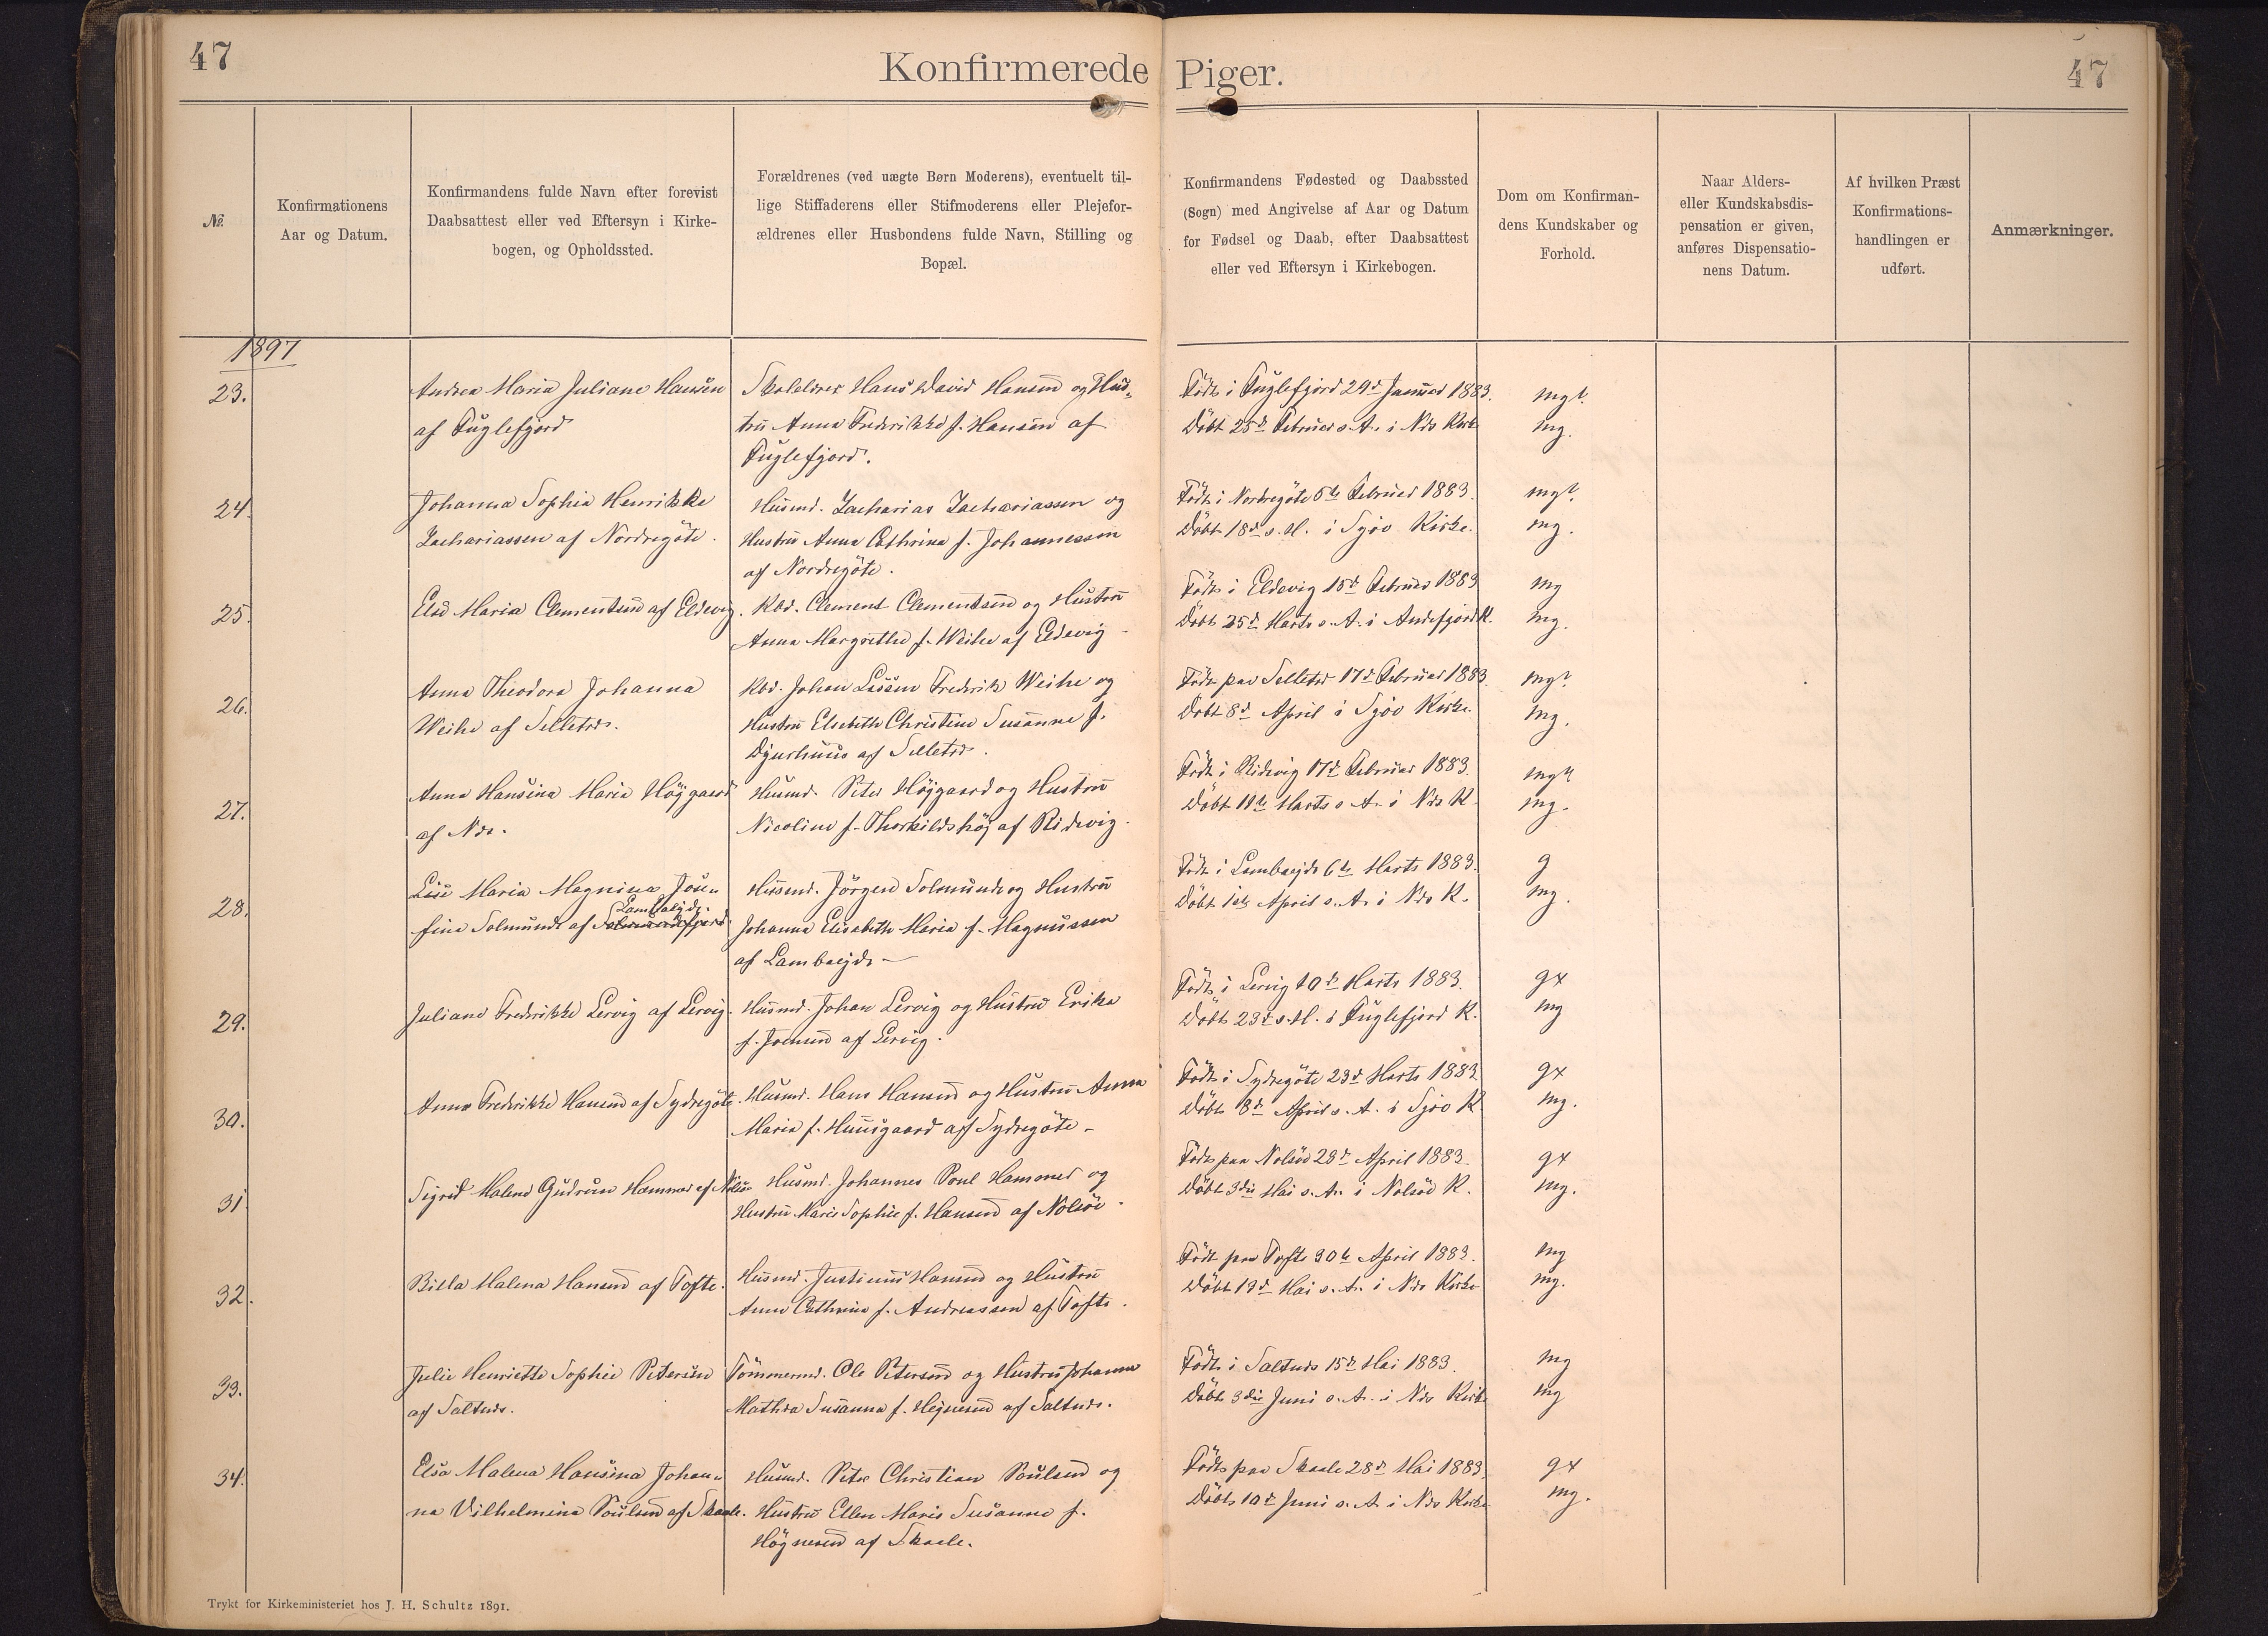 47
Konfirmerede Piger.
47
№
Konfirmationens
Aar og Datum.
Konfirmandens fulde Navn efter forevist
Daabsattest eller ved Eftersyn i Kirke-
bogen, og Opholdssted.
Forældrenes (ved uægte Børn Moderens), eventuelt til-
lige Stiffaderens eller Stifmoderens eller Plejefor-
ældrenes eller Husbondens fulde Navn, Stilling og
Bopæl.
Konfirmandens Fødested og Daabssted
(Sogn) med Angivelse af Aar og Datum
for Fødsel og Daab, efter Daabsattest
eller ved Eftersyn i Kirkebogen.
Dom om Konfirman-
dens Kundskaber og
Forhold.
Naar Alders-
eller Kundskabsdis-
pensation er given,
anføres Dispensatio-
nens Datum.
Af hvilken Præst
Konfirmations-
handlingen er
udført.
Anmærkninger.
1897
23.
Andrea Maria Juliane Hansen
af Fuglefjord
Skolelærer Hans David Hansen og Hus-
tru Anna Frederikke f. Hansen af
Fuglefjord.
Födt i Fuglefjord 29d Januar 1883.
Döbt 25d Februar s. A. i Nds Kirke
mg.
24.
Johanna Sophia Henrikke
Zachariassen af Nordregöte.
Husmd. Zacharias Zachariassen og
Hustru Anna Cathrina f. Johannessen
af Nordregöte.
Födt i Nordregöte 5te Februar 1883.
Döbt 18d s. M. i Gjov Kirke.
mg.
25.
Else Maria Clementsen af Eldevig.
Kbd. Clement Clementsen og Hustru
Anna Margrethe f. Weihe af Eldevig
Födt i Eldevig 15d Februar 1883
Döbt 25d Marts s. A. i Andefjord K.
mg
mg.
26.
Anna Theodora Johanna
Weihe af Selletræ.
Kbd. Johan Frederik Weihe og
Hustru Elsebeth Christine Susanne f.
Djurhuus af Selletræ.
Födt paa Selletræ 17d Februar 1883.
Döbt 8d April i Gjov Kirke.
mg.
27.
Anna Hansina Maria Höjgaard
af Nds.
Husmd. Peter Höjgaard og Hustru
Nicoline f. Thorkildshöj af Ridevig.
Födt i Ridevig 17d Februar 1883.
Döbt 11te Marts s. A. i Nds K.
mg.
28.
Lise Maria Magnina Jose-
Lambaejde.
fina Solmunde af Solmundefjord
Husmd. Jörgen Solmunde og Hustru
Johanna Elisabeth Maria f. Magnussen
af Lambaejde
Födt i Lambaejde 6te Marts 1883.
Döbt 1ste April s. A. i Nds K.
g
mg.
29.
Juliane Frederikke Lervig af Lervig.
Husmd. Johan Lervig og Hustru Erika
f. Joensen af Lervig.
Födt i Lervig 10d Marts 1883.
Döbt 23d s. M. i Fuglefjord K.
gx
mg
30.
Anna Frederikke Hansen af Sydregöte.
Husmd. Hans Hansen og Hustru Anna
Maria f. Huusgaard af Sydregöte
Födt i Sydregöte 23d Marts 1883
Döbt 8d April s. A. i Gjov K
gx
mg.
31
Sigrid Malene Gudrun Hammer af Nolsö
Husmd. Johannes Poul Hammer og
Hustru Marie Sophie f. Hansen af Nolsö
Födt paa Nolsö 28d April 1883.
Döbt 3die Mai s. A. i Nolsö K.
gx
mg.
32.
Billa Malena Hansen af Tofte.
Husmd. Justinus Hansen og Hustru
Anna Cathrina f. Andreassen af Tofte.
Födt paa Tofte 30te April 1883.
Döbt 13d Mai s. A. i Nds Kirke
mg
mg.
33.
Julie Henriette Sophie Petersen
af Saltnes.
Tömmermd. Ole Petersen og Hustru Johanne
Mathea Susanna f. Hejnesen af Saltnes.
Födt i Saltnes 15d Mai 1883.
Döbt 3die Juni s. A. i Nds Kirke
mg
mg
34.
Elsa Malena Hansina Johan-
na Vilhelmina Poulsen af Skaale.
Husmd. Peter Christian Poulsen og
Hustru Ellen Marie Susanne f.
Högnesen af Skaale.
Födt paa Skaale 28d Mai 1883
Döbt 10d Juni s. A. i Nds Kirke
gx
mg.
Trykt for Kirkeministeriet hos J. H. Schultz 1891.